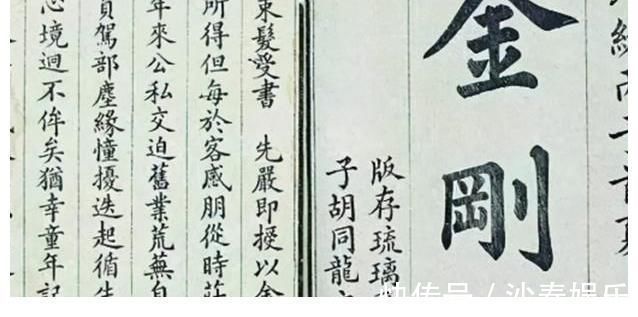 緒丙子首夏
金剛
版存琉璃
子胡同龍
束髮受書 先嚴即授以金
所得但每於客感朋從時莊
年來公私交迫舊業荒蕪自
員駕部塵緣憧擾迭起循生
心境迥不侔矣猶幸童年記
快传号 / 沙秦娱乐